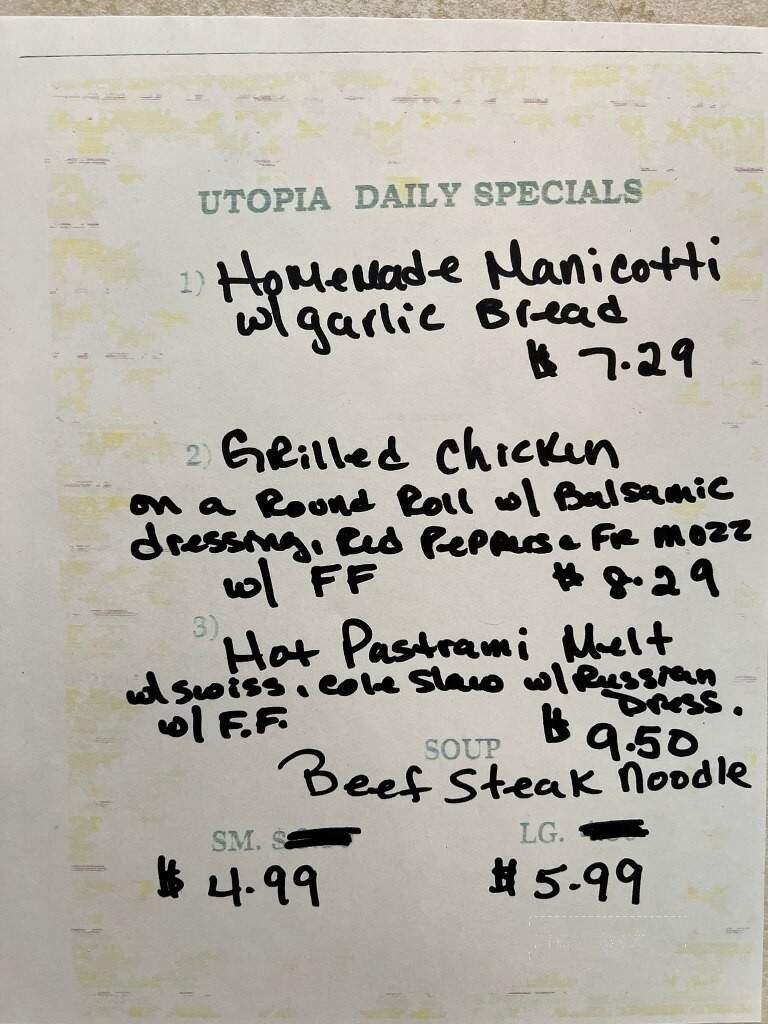 UTOPIA DAILY SPECIALS
1) Homemade Manicotti
w/ garlic Bread
$ 7.29
2) Grilled Chicken
on a Round Roll w/ Balsamic
dressing, Red Peppers & Fr mozz
w/ FF $ 8.29
3) Hot Pastrami Melt
w/ swiss, cole slaw w/ Russian
Dress.
w/ F.F. $ 9.50
SOUP
Beef Steak Noodle
SM. $ LG.
$ 4.99 $ 5.99